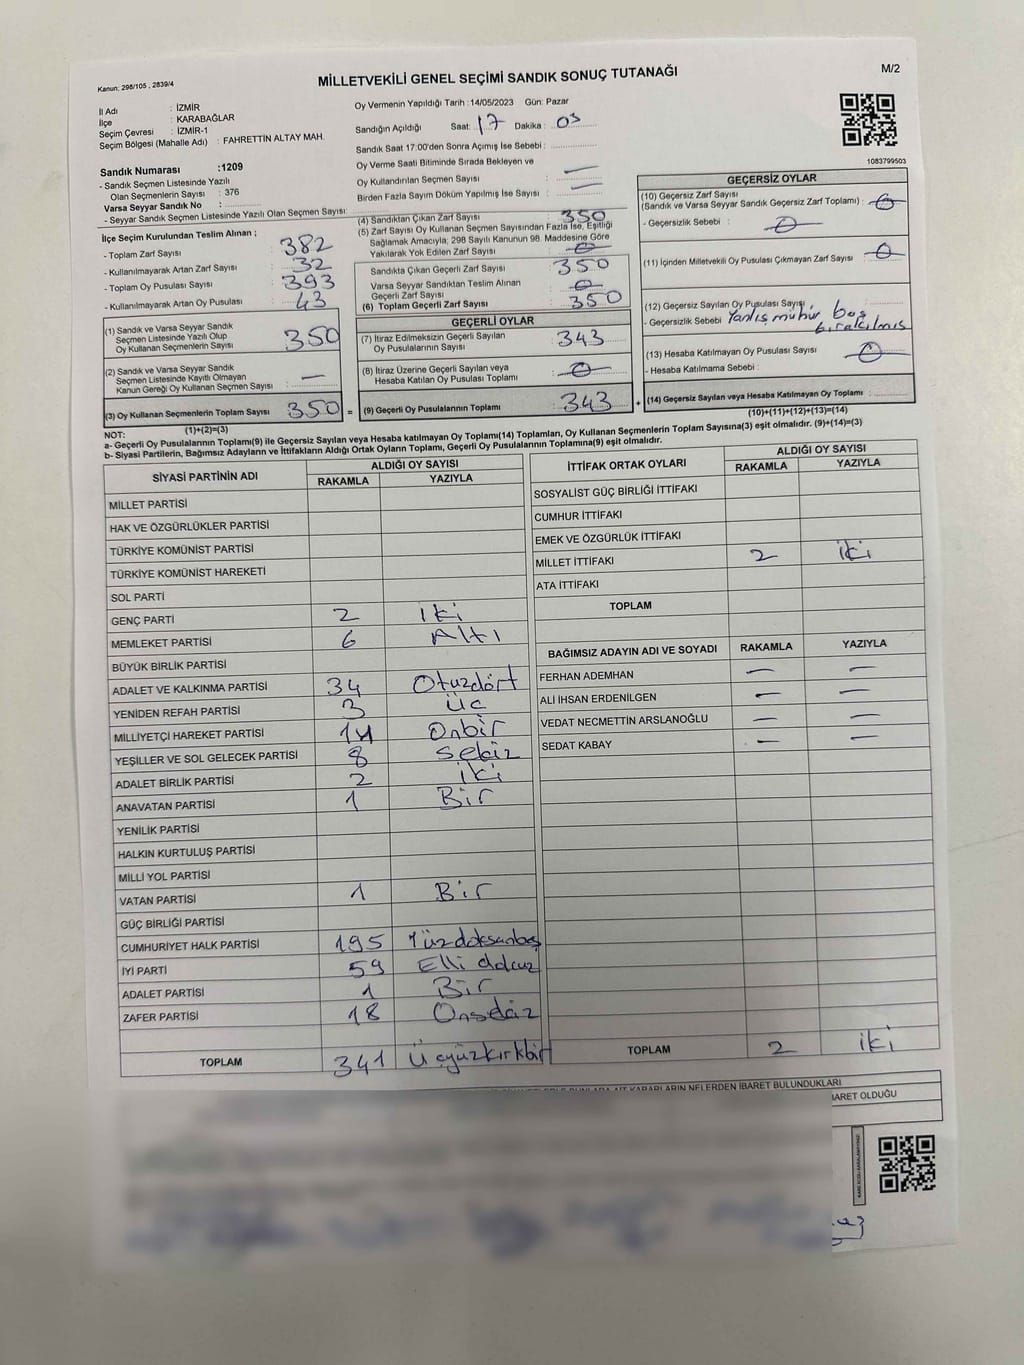 Kanun: 298/105 , 2839/4
MİLLETVEKİLİ GENEL SEÇİMİ SANDIK SONUÇ TUTANAĞI
M/2
İl Adı : İZMİR
İlçe : KARABAĞLAR
Seçim Çevresi : İZMİR-1
Seçim Bölgesi (Mahalle Adı) : FAHRETTİN ALTAY MAH.
Sandık Numarası :1209
- Sandık Seçmen Listesinde Yazılı
Olan Seçmenlerin Sayısı : 376
Varsa Seyyar Sandık No :
- Seyyar Sandık Seçmen Listesinde Yazılı Olan Seçmen Sayısı:
İlçe Seçim Kurulundan Teslim Alınan ;
- Toplam Zarf Sayısı : 382
- Kullanılmayarak Artan Zarf Sayısı : 32
- Toplam Oy Pusulası Sayısı : 393
- Kullanılmayarak Artan Oy Pusulası : 43
(1) Sandık ve Varsa Seyyar Sandık
Seçmen Listesinde Yazılı Olup
Oy Kullanan Seçmenlerin Sayısı : 350
(2) Sandık ve Varsa Seyyar Sandık
Seçmen Listesinde Kayıtlı Olmayan
Kanun Gereği Oy Kullanan Seçmen Sayısı : —
(3) Oy Kullanan Seçmenlerin Toplam Sayısı 350 =
(1)+(2)=(3)
Oy Vermenin Yapıldığı Tarih :14/05/2023 Gün: Pazar
Sandığın Açıldığı Saat: 17 Dakika : 03
Sandık Saat 17:00'den Sonra Açımış İse Sebebi :
Oy Verme Saati Bitiminde Sırada Bekleyen ve
Oy Kullandırılan Seçmen Sayısı : —
Birden Fazla Sayım Döküm Yapılmış İse Sayısı : —
(4) Sandıktan Çıkan Zarf Sayısı : 350
(5) Zarf Sayısı Oy Kullanan Seçmen Sayısından Fazla İse, Eşitliği
Sağlamak Amacıyla, 298 Sayılı Kanunun 98. Maddesine Göre
Yakılarak Yok Edilen Zarf Sayısı : 0
Sandıkta Çıkan Geçerli Zarf Sayısı : 350
Varsa Seyyar Sandıktan Teslim Alınan
Geçerli Zarf Sayısı : 0
(6) Toplam Geçerli Zarf Sayısı : 350
GEÇERLİ OYLAR
(7) İtiraz Edilmeksizin Geçerli Sayılan
Oy Pusulalarının Sayısı : 343
(8) İtiraz Üzerine Geçerli Sayılan veya
Hesaba Katılan Oy Pusulası Toplamı : 0
(9) Geçerli Oy Pusulalarının Toplamı : 343 +
1083799503
GEÇERSİZ OYLAR
(10) Geçersiz Zarf Sayısı
(Sandık ve Varsa Seyyar Sandık Geçersiz Zarf Toplamı) : 0
- Geçersizlik Sebebi : 0
(11) İçinden Milletvekili Oy Pusulası Çıkmayan Zarf Sayısı : 0
(12) Geçersiz Sayılan Oy Pusulası Sayısı :
- Geçersizlik Sebebi : Yanlış mühür boş
bırakılmış
(13) Hesaba Katılmayan Oy Pusulası Sayısı : 0
- Hesaba Katılmama Sebebi :
(14) Geçersiz Sayılan veya Hesaba Katılmayan Oy Toplamı :
(10)+(11)+(12)+(13)=(14)
NOT:
a- Geçerli Oy Pusulalarının Toplamı(9) ile Geçersiz Sayılan veya Hesaba katılmayan Oy Toplamı(14) Toplamları, Oy Kullanan Seçmenlerin Toplam Sayısına(3) eşit olmalıdır. (9)+(14)=(3)
b- Siyasi Partilerin, Bağımsız Adayların ve İttifakların Aldığı Ortak Oyların Toplamı, Geçerli Oy Pusulalarının Toplamına(9) eşit olmalıdır.
SİYASİ PARTİNİN ADI ALDIĞI OY SAYISI
RAKAMLA YAZIYLA
MİLLET PARTİSİ
HAK VE ÖZGÜRLÜKLER PARTİSİ
TÜRKİYE KOMÜNİST PARTİSİ
TÜRKİYE KOMÜNİST HAREKETİ
SOL PARTİ
GENÇ PARTİ 2 İki
MEMLEKET PARTİSİ 6 Altı
BÜYÜK BİRLİK PARTİSİ
ADALET VE KALKINMA PARTİSİ 34 Otuzdört
YENİDEN REFAH PARTİSİ 3 üç
MİLLİYETÇİ HAREKET PARTİSİ 11 Onbir
YEŞİLLER VE SOL GELECEK PARTİSİ 8 sekiz
ADALET BİRLİK PARTİSİ 2 iki
ANAVATAN PARTİSİ 1 Bir
YENİLİK PARTİSİ
HALKIN KURTULUŞ PARTİSİ
MİLLİ YOL PARTİSİ
VATAN PARTİSİ 1 Bir
GÜÇ BİRLİĞİ PARTİSİ
CUMHURİYET HALK PARTİSİ 195 Yüzdoksanbeş
İYİ PARTİ 59 Elli dokuz
ADALET PARTİSİ 1 Bir
ZAFER PARTİSİ 18 Onsekiz
TOPLAM 341 Üçyüzkırkbir
İTTİFAK ORTAK OYLARI ALDIĞI OY SAYISI
RAKAMLA YAZIYLA
SOSYALİST GÜÇ BİRLİĞİ İTTİFAKI
CUMHUR İTTİFAKI
EMEK VE ÖZGÜRLÜK İTTİFAKI
MİLLET İTTİFAKI 2 iki
ATA İTTİFAKI
TOPLAM
BAĞIMSIZ ADAYIN ADI VE SOYADI RAKAMLA YAZIYLA
FERHAN ADEMHAN — —
ALİ İHSAN ERDENİLGEN — —
VEDAT NECMETTİN ARSLANOĞLU — —
SEDAT KABAY — —
TOPLAM 2 iki
NELERDEN İBARET BULUNDUKLARI
OLDUĞU